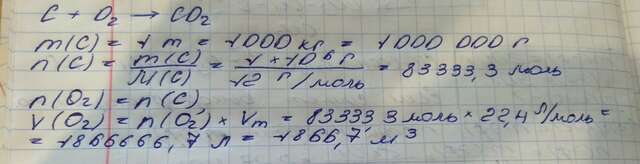 C + O₂ → CO₂
m(C) = 1 т = 1000 кг = 1000 000 г
n(C) = m(C)/M(C) = 1*10⁶ г/12 г/моль = 83333,3 моль
n(O₂) = n(C)
V(O₂) = n(O₂) * Vm = 83333 3 моль * 22,4 л/моль =
= 1866666,7 л = 1866,7 м³